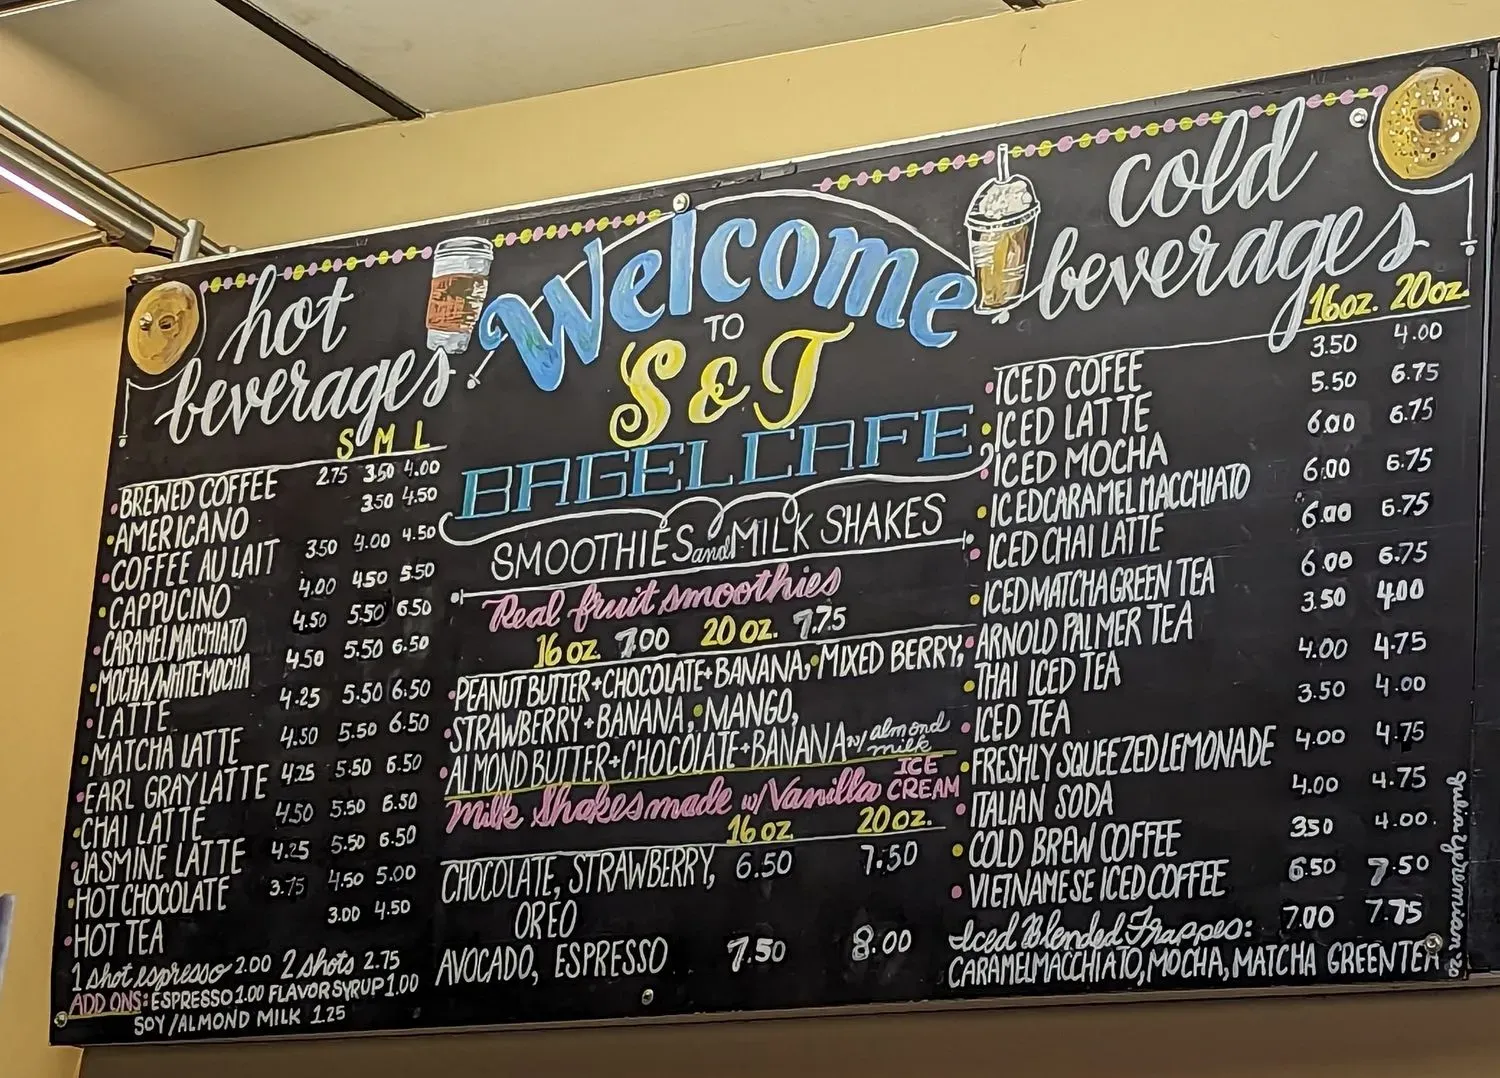 hot
beverages
S M L
BREWED COFFEE 2.75 3.50 4.00
AMERICANO 3.50 4.50
COFFEE AU LAIT 3.50 4.00 4.50
CAPPUCINO 4.00 4.50 5.50
CARAMEL MACCHIATO 4.50 5.50 6.50
MOCHA/WHITE MOCHA 4.50 5.50 6.50
LATTE 4.25 5.50 6.50
MATCHA LATTE 4.50 5.50 6.50
EARL GRAY LATTE 4.25 5.50 6.50
CHAI LATTE 4.50 5.50 6.50
JASMINE LATTE 4.25 5.50 6.50
HOT CHOCOLATE 3.75 4.50 5.00
HOT TEA 3.00 4.50
1 shot espresso 2.00 2 shots 2.75
ADD ONS: ESPRESSO 1.00 FLAVOR SYRUP 1.00
SOY/ALMOND MILK 1.25
Welcome
TO
S & T
BAGEL CAFE
SMOOTHIES and MILK SHAKES
Real fruit smoothies
16 oz. 7.00 20 oz. 7.75
PEANUT BUTTER+CHOCOLATE+BANANA, MIXED BERRY,
STRAWBERRY+BANANA, MANGO,
ALMOND BUTTER+CHOCOLATE+BANANA w/ almond milk
Milk Shakes made w/ Vanilla ICE CREAM
16 oz. 20 oz.
CHOCOLATE, STRAWBERRY, 6.50 7.50
OREO
AVOCADO, ESPRESSO 7.50 8.00
cold
beverages
16 oz. 20 oz.
ICED COFEE 3.50 4.00
ICED LATTE 5.50 6.75
ICED MOCHA 6.00 6.75
ICED CARAMEL MACCHIATO 6.00 6.75
ICED CHAI LATTE 6.00 6.75
ICED MATCHA GREEN TEA 6.00 6.75
ARNOLD PALMER TEA 3.50 4.00
THAI ICED TEA 4.00 4.75
ICED TEA 3.50 4.00
FRESHLY SQUEEZED LEMONADE 4.00 4.75
ITALIAN SODA 4.00 4.75
COLD BREW COFFEE 3.50 4.00.
VIETNAMESE ICED COFFEE 6.50 7.50
Iced Blended Frappes: 7.00 7.75
CARAMEL MACCHIATO, MOCHA, MATCHA GREEN TEA